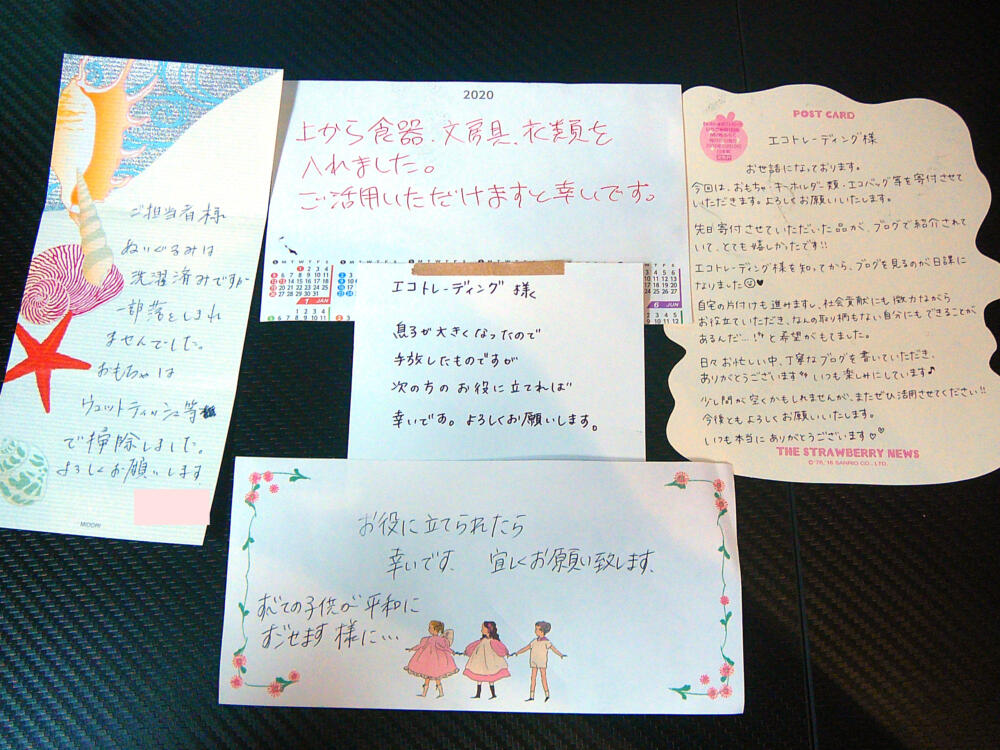 ご担当者様
ぬいぐるみは
洗濯済みですが
一部落としきれ
ませんでした。
おもちゃは
ウエットティッシュ等
で掃除しました。
よろしくお願いします
MIDORI
2020
上から食器、文房具、衣類を
入れました。
ご活用いただけますと幸いです。
1 JAN
6 JUN
エコトレーディング 様
息子が大きくなったので
手放したものですが
次の方のお役に立てれば
幸いです。よろしくお願いします。
POST CARD
エコトレーディング様
お世話になっております。
今回は、おもちゃ・キーホルダー類・エコバッグ等を寄付させて
いただきます。よろしくお願いいたします。
先日寄付させていただいた品が、ブログで紹介されて
いて、とても嬉しかったです!!
エコトレーディング様を知ってから、ブログを見るのが日課に
なりました☺♥
自宅の片付けも進みますし、社会貢献にも微力ながら
お役立ていただき、なんの取り柄もない自分にもできることが
あるんだ…!と希望がもてました。
日々お忙しい中、丁寧なブログを書いていただき、
ありがとうございます いつも楽しみにしています♪
少し間が空くかもしれませんが、またぜひ活用させてください!!
今後ともよろしくお願いいたします。
いつも本当にありがとうございます♡♡
THE STRAWBERRY NEWS
© '76, '16 SANRIO CO., LTD.
お役に立てられたら
幸いです。 宜しくお願い致します。
すべての子供が平和に
すごせます様に…